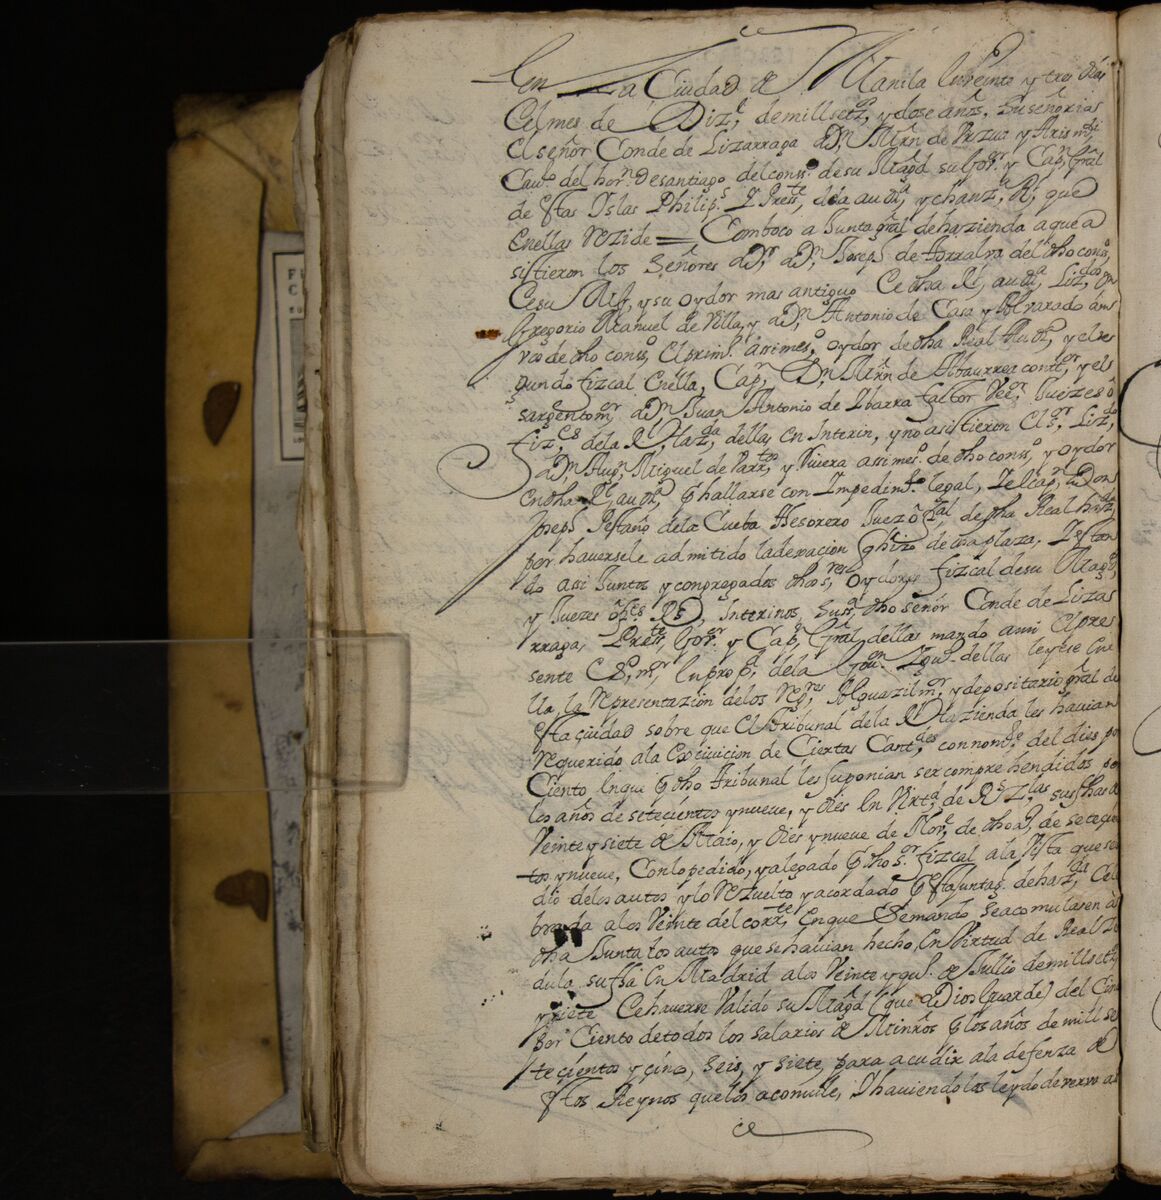 En La Ciudad de Manila en veinte y tres dias
del mes de Diz.e de mill setez.os y dose años, Su señoria
el señor Conde de Lizarraga D.n Mrn de Vrzua y Arism.di
Cau.o del horn. de santiago del conss.o de su Magd su Gou.or y Capn Gral
de estas Yslas Philip.s Y Press.te de la aud.a y chanz.a Rl, que
en ellas Rezide = Combocó a Junta gral de hazienda a que a
sistieron los Señores D.r D.n Joseph de Torralva del dho conss.o
de su Mag, y su oydor mas antiguo de dha Rl aud.a, Liz.do Dn
Gregorio Manuel de Villa, y D.n Antonio de Casa y Alvarado am
vos de dho conss.o el prim.o assimes.o oydor de dha Real Aud.a, y el se
gundo fizcal en ella, Cap.n D.n Mrn de Abaurrea cont.or, y el
sargento m.or D.n Juan Antonio de Ybarra factor Vee.or Juezes o
fiz.es de la Rl Haz.da dellas en Interin, y no asistieron el s.or Liz.do
D.n Aug.n Miguel de Parr.s y Rivera assimes.o de dho conss.o, y oydor
en dha Rl aud.a por hallarse con Impedim.to legal, Y el cap.n Don
Joseph Pestaño de la Cueba Thesorero Juez ofizal de dha Real haz.da
por haversele admitido la dexacion q hizo de dha plaza, Y estan
do assi Juntos y congregados dhos s.res oydores fizcal de su Magd,
y Juezes ofi.es R.s Interinos, Su s.a dho señor Conde de Lizar
rraga, Press.te Gou.or y Cap.n Gral dellas mando a mi el pres
sente Es.no m.or en prop.d de la Gou.on Y gu.a dellas leyese en
ella, la Representazion de los Reg.res Alguazil m.or, y depositario gral de
esta ciudad sobre que el tribunal de la Rl Hazienda les havian
requerido a la exsivicion de ciertas cant.des con nomb.e del dies por
ciento en que por dho tribunal les suponian ser comprehendidos por
los años de setecientos y nueve, y dies en Virt.d de R.s Z.las sus fhas a
Veinte y siete de Maio, y dies y nueve de Nov.re de dho a.o de setecien
tos y nueve, Con lo pedido, y alegado por dho s.or fizcal a la vista que se le
dio de los autos y lo rezuelto y acordado por esta junta g. de haz.da cele
brada a los Veinte del corr.te en que se mando se acomulasen a
dha Junta los autos que se havian hecho en Virtud de Real Ze
dula su fha en Madrid a los Veinte y qu.o de Jullio de mill setez.os
y siete de haverse valido su Magd (que Dios Guarde) del Cinco
por Ciento de todos los salarios de Ministros por los años de mill se
tecientos y cinco, seis, y siete, para acudir a la defenza de
estos Reynos que los acomule, Y haviendolos leydo de vervo ad